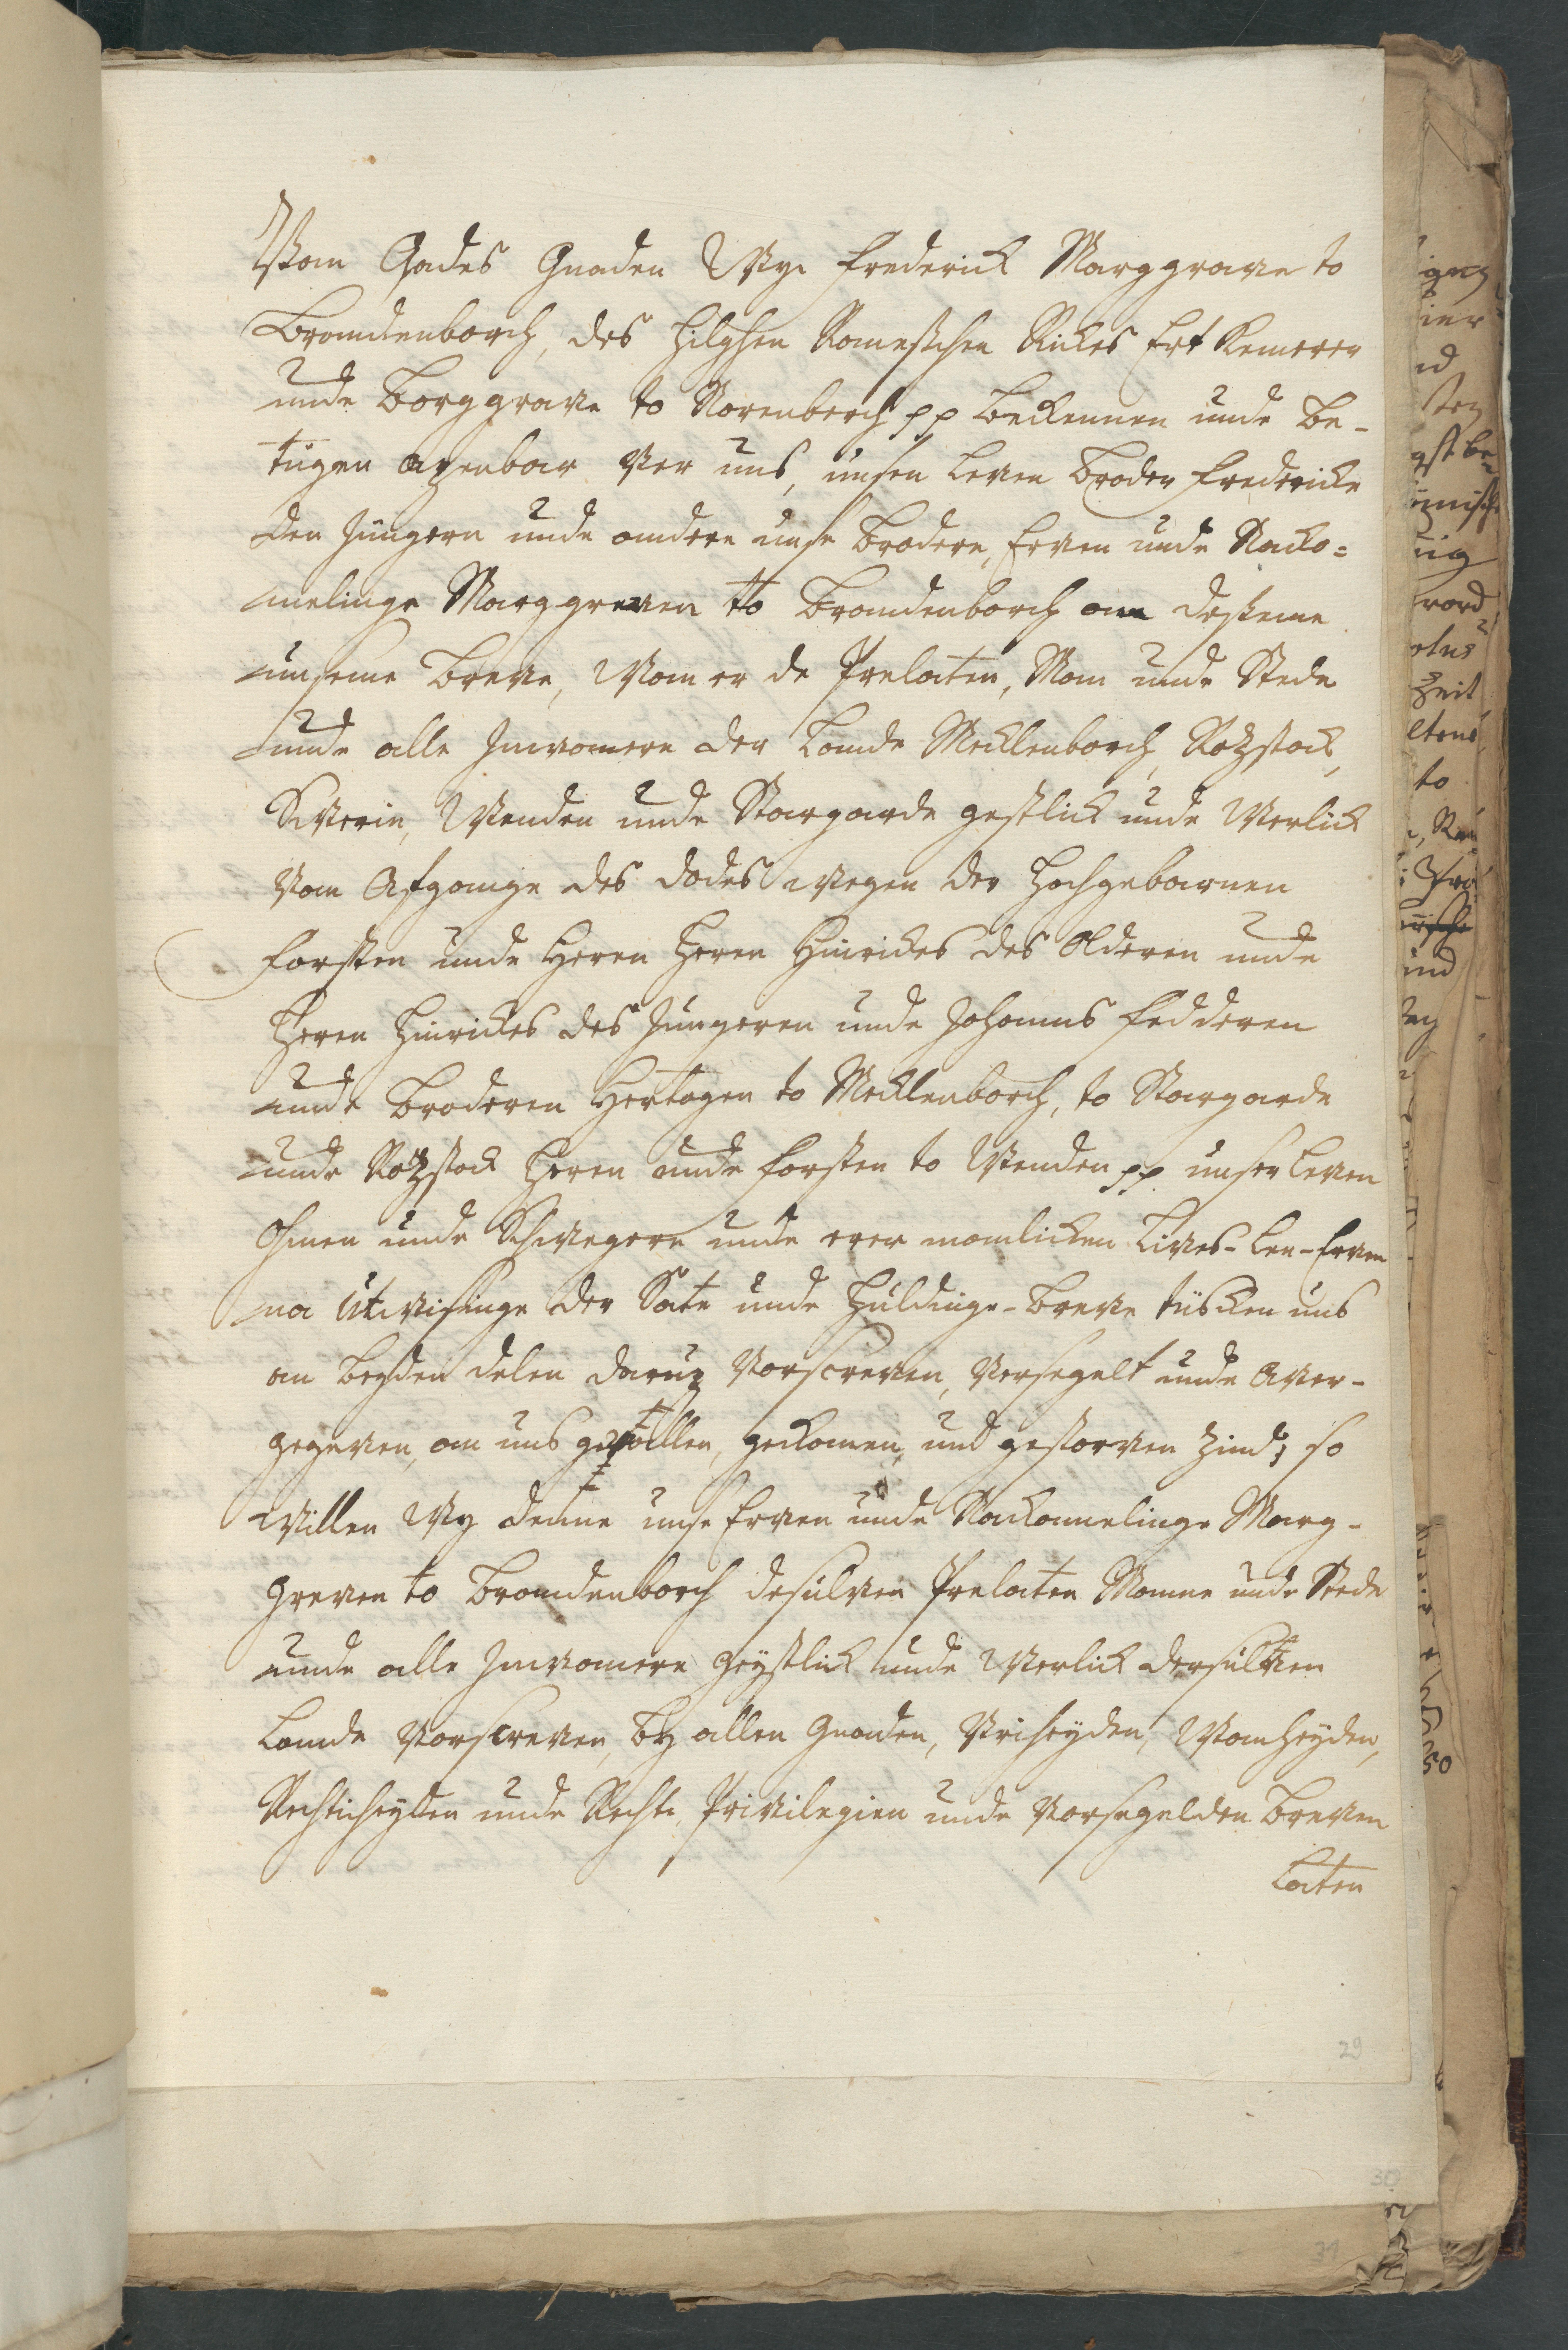 Van Gades Gnaden Wy Frederick Marggrave to
Brandenborch, des hilghen Romesschen Rickes Ertz Kemerer
unde Borggrave to Norenberch pp bekennen unde be-
tügen apenbar ver uns, unsen leven Broder Fredericke
den Jüngern unde andere unse Brodere, Erven unde Nacko=
melinge Marggreven to Brandenborch ann desseme
unseme Breve, Wan er de Prelaten, Man unde Stede
unde alle Inwonere der Lande Mecklenborch, Rozstock,
Swerin, Wenden unde Stargarde gestlick unde Werlick
van Afgange des dodes wegen der Hochgebarnen
Forsten unde Heren Heren Hinrickes des Olderen unde
Heren Hinrickes des Jüngeren unde Johanns Fedderen
unde Broderen Hertogen to Mecklenborch, to Stargarde
unde Rozstock Heren unde Forsten to Wenden pp unser leven
Ohmen unde Schwegere unde erer manlicken Lives-Len-Erven
na Utwisinge der Sate unde Huldinge-Breve tüscken uns
an beyden delen darup vorscreven, versegelt unde aver-
gegeven, an uns gefallen, gekomen, und gestorven zind; so
willen Wy denne unse Erven unde Nackomelinge Marg-
greven to Brandenborch desulven Prelaten Manne unde Stede
unde alle Inwonere geystlick unde Werlick dersulven
Lande vorscreven, by allen Gnaden, Vriheyden, Wanheyden,
Rechticheyden unde Rechte, Privilegien unde vorsegelden Breven
laten
29
30
31